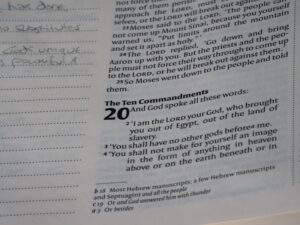 has done.
God's unique
many of them perish.
approach the LORD, must
selves, or the LORD will break out against
23 Moses said to the LORD, 'The people can-
not come up Mount Sinai, because you yourself
warned us, "Put limits around the mountain
and set it apart as holy."'
24 The LORD replied, 'Go down and bring
Aaron up with you. But the priests and the peo-
ple must not force their way through to come up
to the LORD, or he will break out against them.'
25 So Moses went down to the people and told
them.
The Ten Commandments
20 And God spoke all these words:
2 'I am the LORD your God, who brought
you out of Egypt, out of the land of
slavery.
3 'You shall have no other gods before me.
4 'You shall not make for yourself an image
in the form of anything in heaven
above or on the earth beneath or in
b 18 Most Hebrew manuscripts; a few Hebrew manuscripts
and Septuagint and all the people
c 19 Or and God answered him with thunder
d 3 Or besides